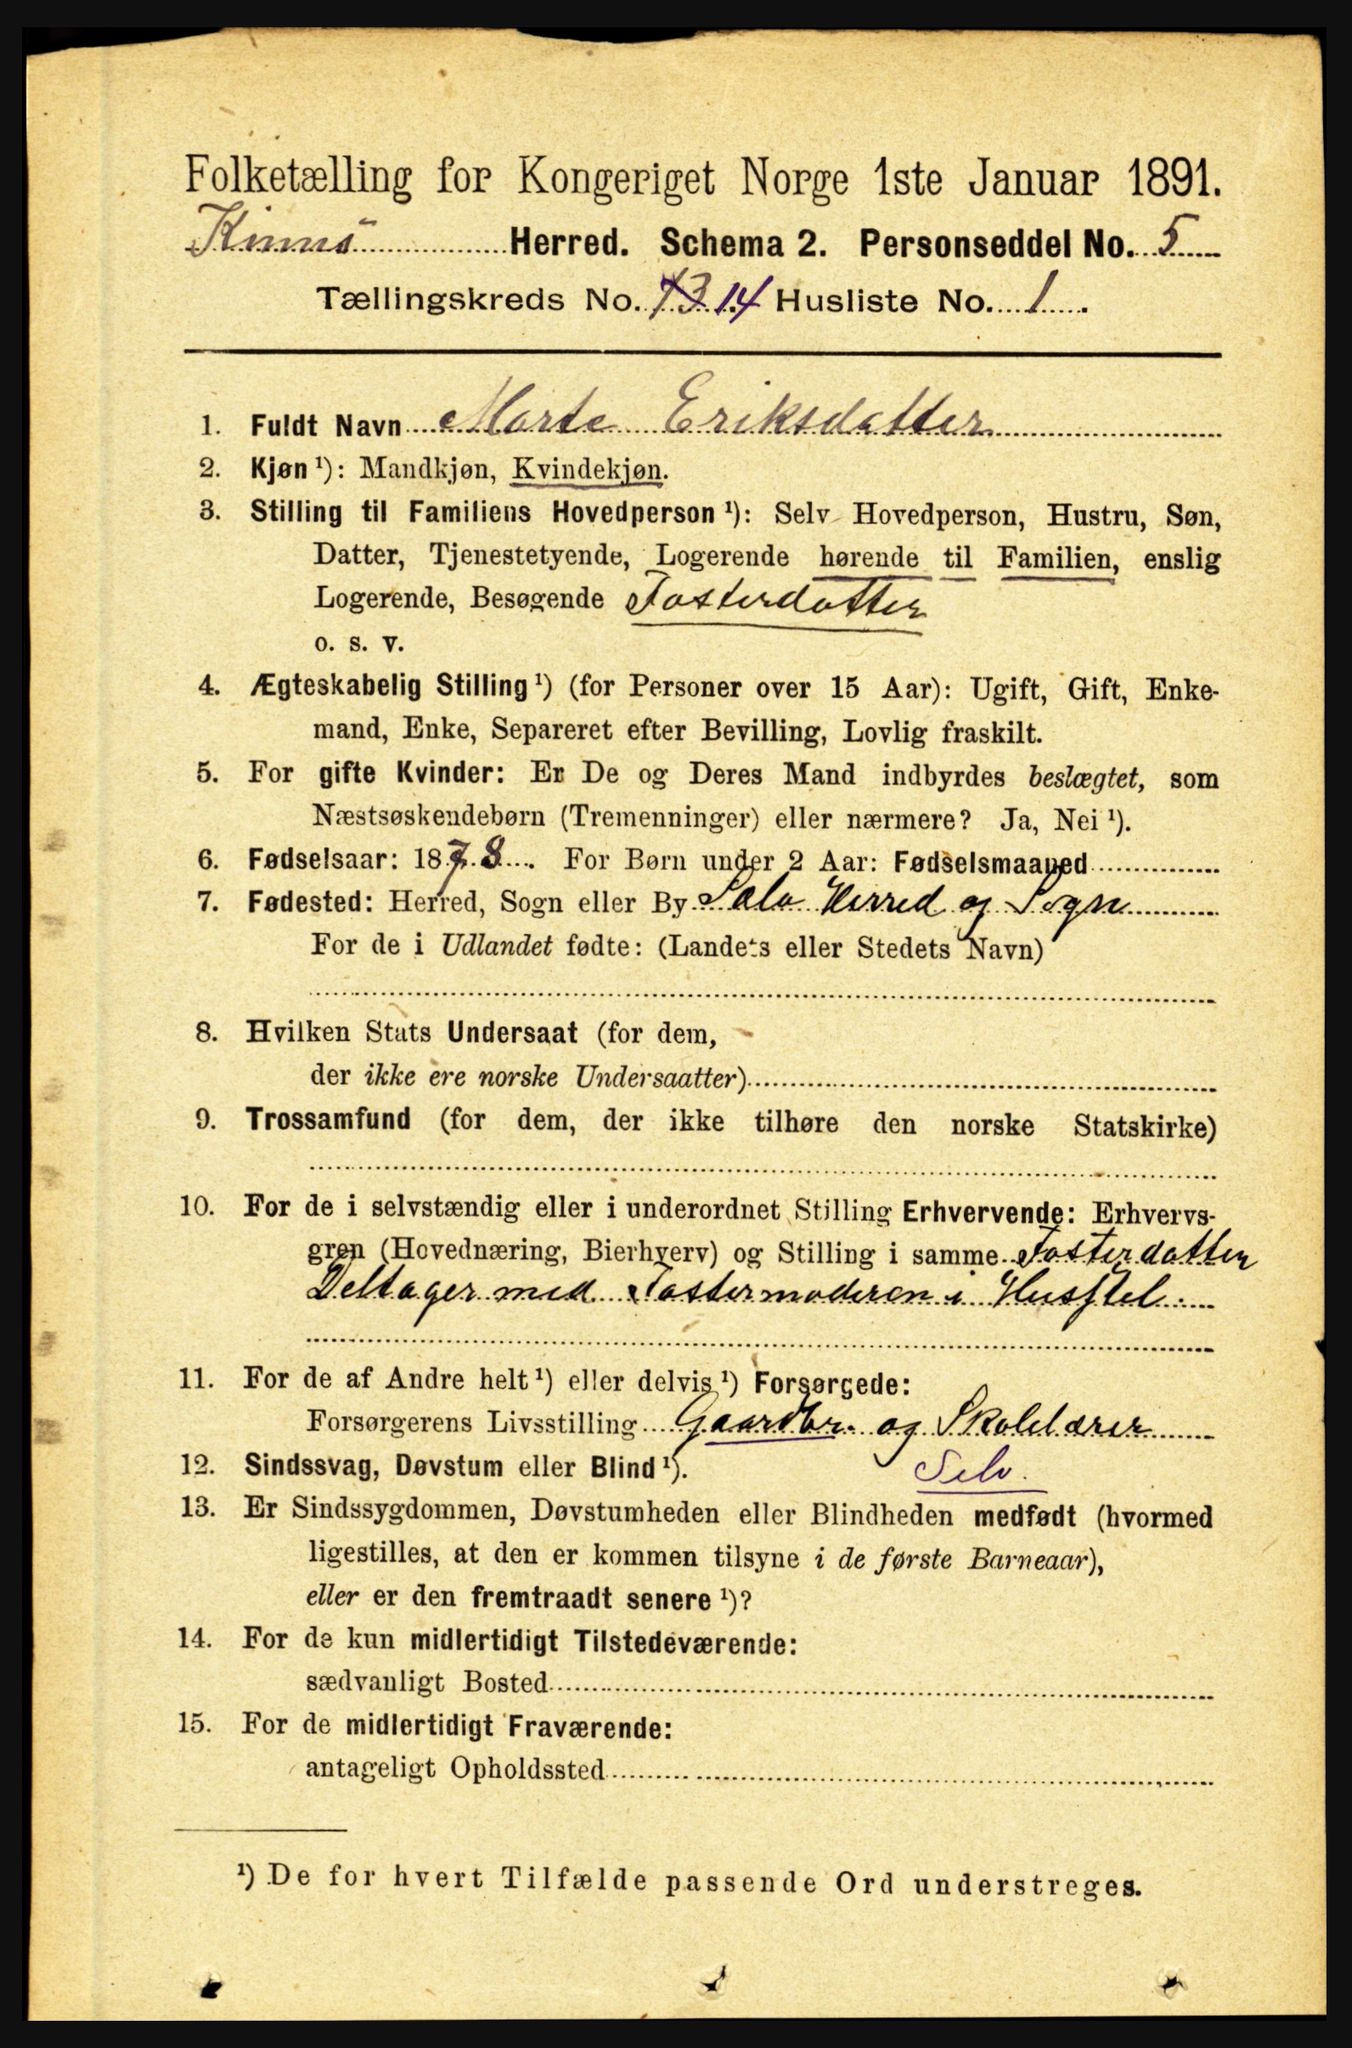 Folketælling for Kongeriget Norge 1ste Januar 1891.
Kinns Herred. Schema 2. Personseddel No. 5
Tællingskreds No. 13 14 Husliste No. 1.
1. Fuldt Navn Marte Eriksdatter
2. Kjøn ¹): Mandkjøn, Kvindekjøn.
3. Stilling til Familiens Hovedperson ¹): Selv Hovedperson, Hustru, Søn,
Datter, Tjenestetyende, Logerende hørende til Familien, enslig
Logerende, Besøgende Fosterdatter
o. s. v.
4. Ægteskabelig Stilling ¹) (for Personer over 15 Aar): Ugift, Gift, Enke-
mand, Enke, Separeret efter Bevilling, Lovlig fraskilt.
5. For gifte Kvinder: Er De og Deres Mand indbyrdes beslægtet, som
Næstsøskendebørn (Tremenninger) eller nærmere? Ja, Nei ¹).
6. Fødselsaar: 1878. For Børn under 2 Aar: Fødselsmaaned
7. Fødested: Herred, Sogn eller By Sælø Herred og Sogn
For de i Udlandet fødte: (Landets eller Stedets Navn)
8. Hvilken Stats Undersaat (for dem,
der ikke ere norske Undersaatter)
9. Trossamfund (for dem, der ikke tilhøre den norske Statskirke)
10. For de i selvstændig eller i underordnet Stilling Erhvervende: Erhvervs-
gren (Hovednæring, Bierhverv) og Stilling i samme Fosterdatter
Deltager med Fostermoderen i Husstel.
11. For de af Andre helt ¹) eller delvis ¹) Forsørgede:
Forsørgerens Livsstilling Gaardbr. og Skolelærer
12. Sindssvag, Døvstum eller Blind ¹). Selv.
13. Er Sindssygdommen, Døvstumheden eller Blindheden medfødt (hvormed
ligestilles, at den er kommen tilsyne i de første Barneaar),
eller er den fremtraadt senere ¹)?
14. For de kun midlertidigt Tilstedeværende:
sædvanligt Bosted
15. For de midlertidigt Fraværende:
antageligt Opholdssted
¹) De for hvert Tilfælde passende Ord understreges.